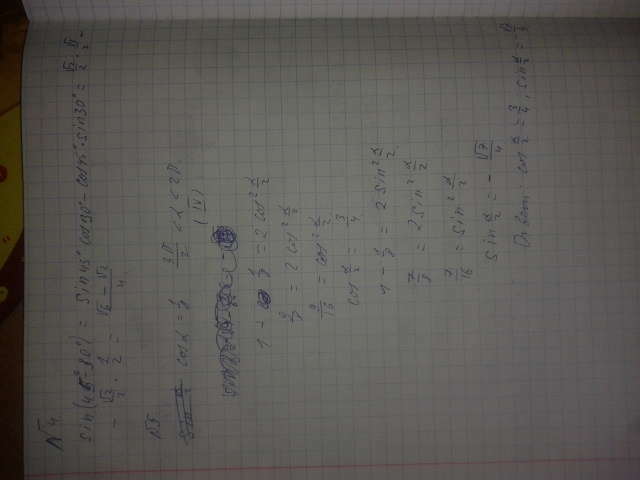 N4
sin(45°-30°) = sin45° cos30° - cos45° sin30° = √2/2 · √3/2 -
- √2/2 · 1/2 = (√6 - √2)/4
N5
cosα = 1/8   3π/2 < α < 2π
(IV)
= 2cos² α/2
9/8 = 2cos² α/2
9/16 = cos² α/2
cos α/2 = 3/4
1 - 1/8 = 2sin² α/2
7/8 = 2sin² α/2
7/16 = sin² α/2
sin α/2 = - √7/4
cos α/2 = 3/4, sin α/2 =